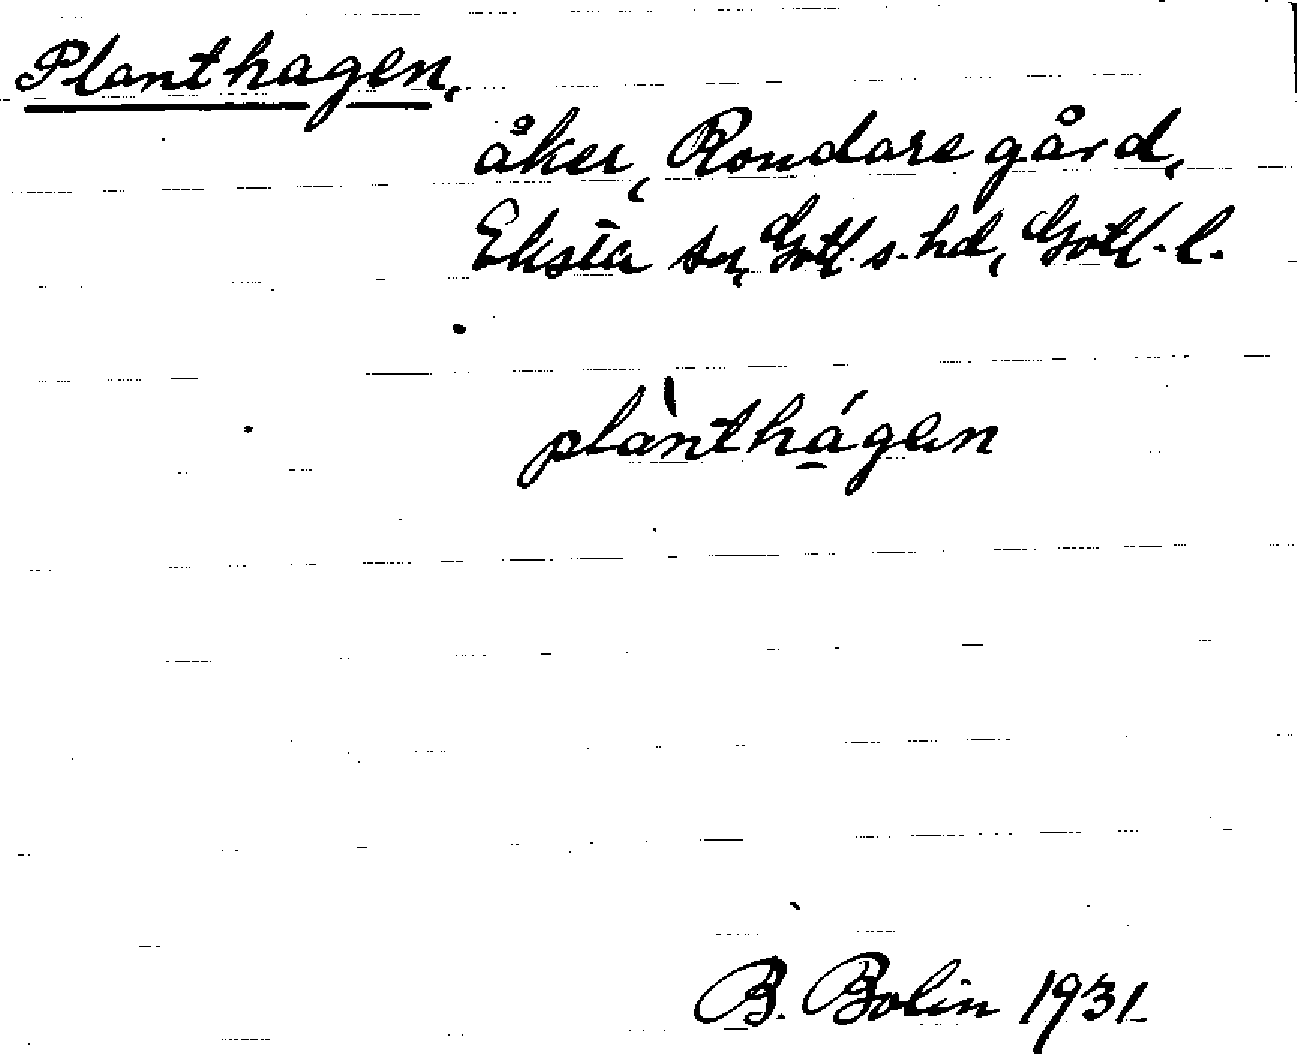 Planthagen,
åker, Rondare gård,
Eksta sn, Gotl. s. hd, Gotl. l.
plànthá̱gen
B. Bolin 1931